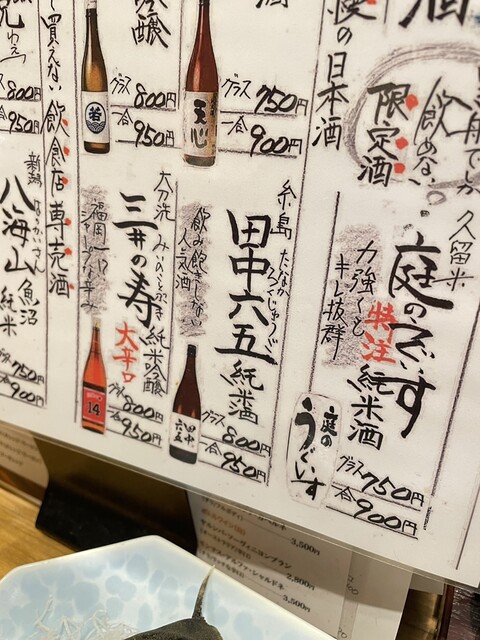 酒
飲めない
限定酒
の日本酒
グラス 750円
一合 900円
天心
吟醸
グラス 800円
一合 950円
若
て買えない飲食店専売酒
800円
950円
久留米
庭のうぐいす
特注 純米酒
力強くと
キレ抜群
庭の
うぐいす
グラス 750円
一合 900円
糸島
たなかろくじゅうご
田中六五
純米酒
飲み飽きしない
人気酒
田中
六五
グラス 800円
一合 950円
大刀洗
みいのことぶき
三井の寿
純米吟醸
大辛口
福岡一の
シャープな辛み
14
グラス 800円
一合 950円
新潟
はっかいさん
八海山
魚沼
純米
グラス 750円
一合 900円
3,500円
カルベルネ・ソーヴィニヨンブラン
2,800円
シャルドネ
3,500円